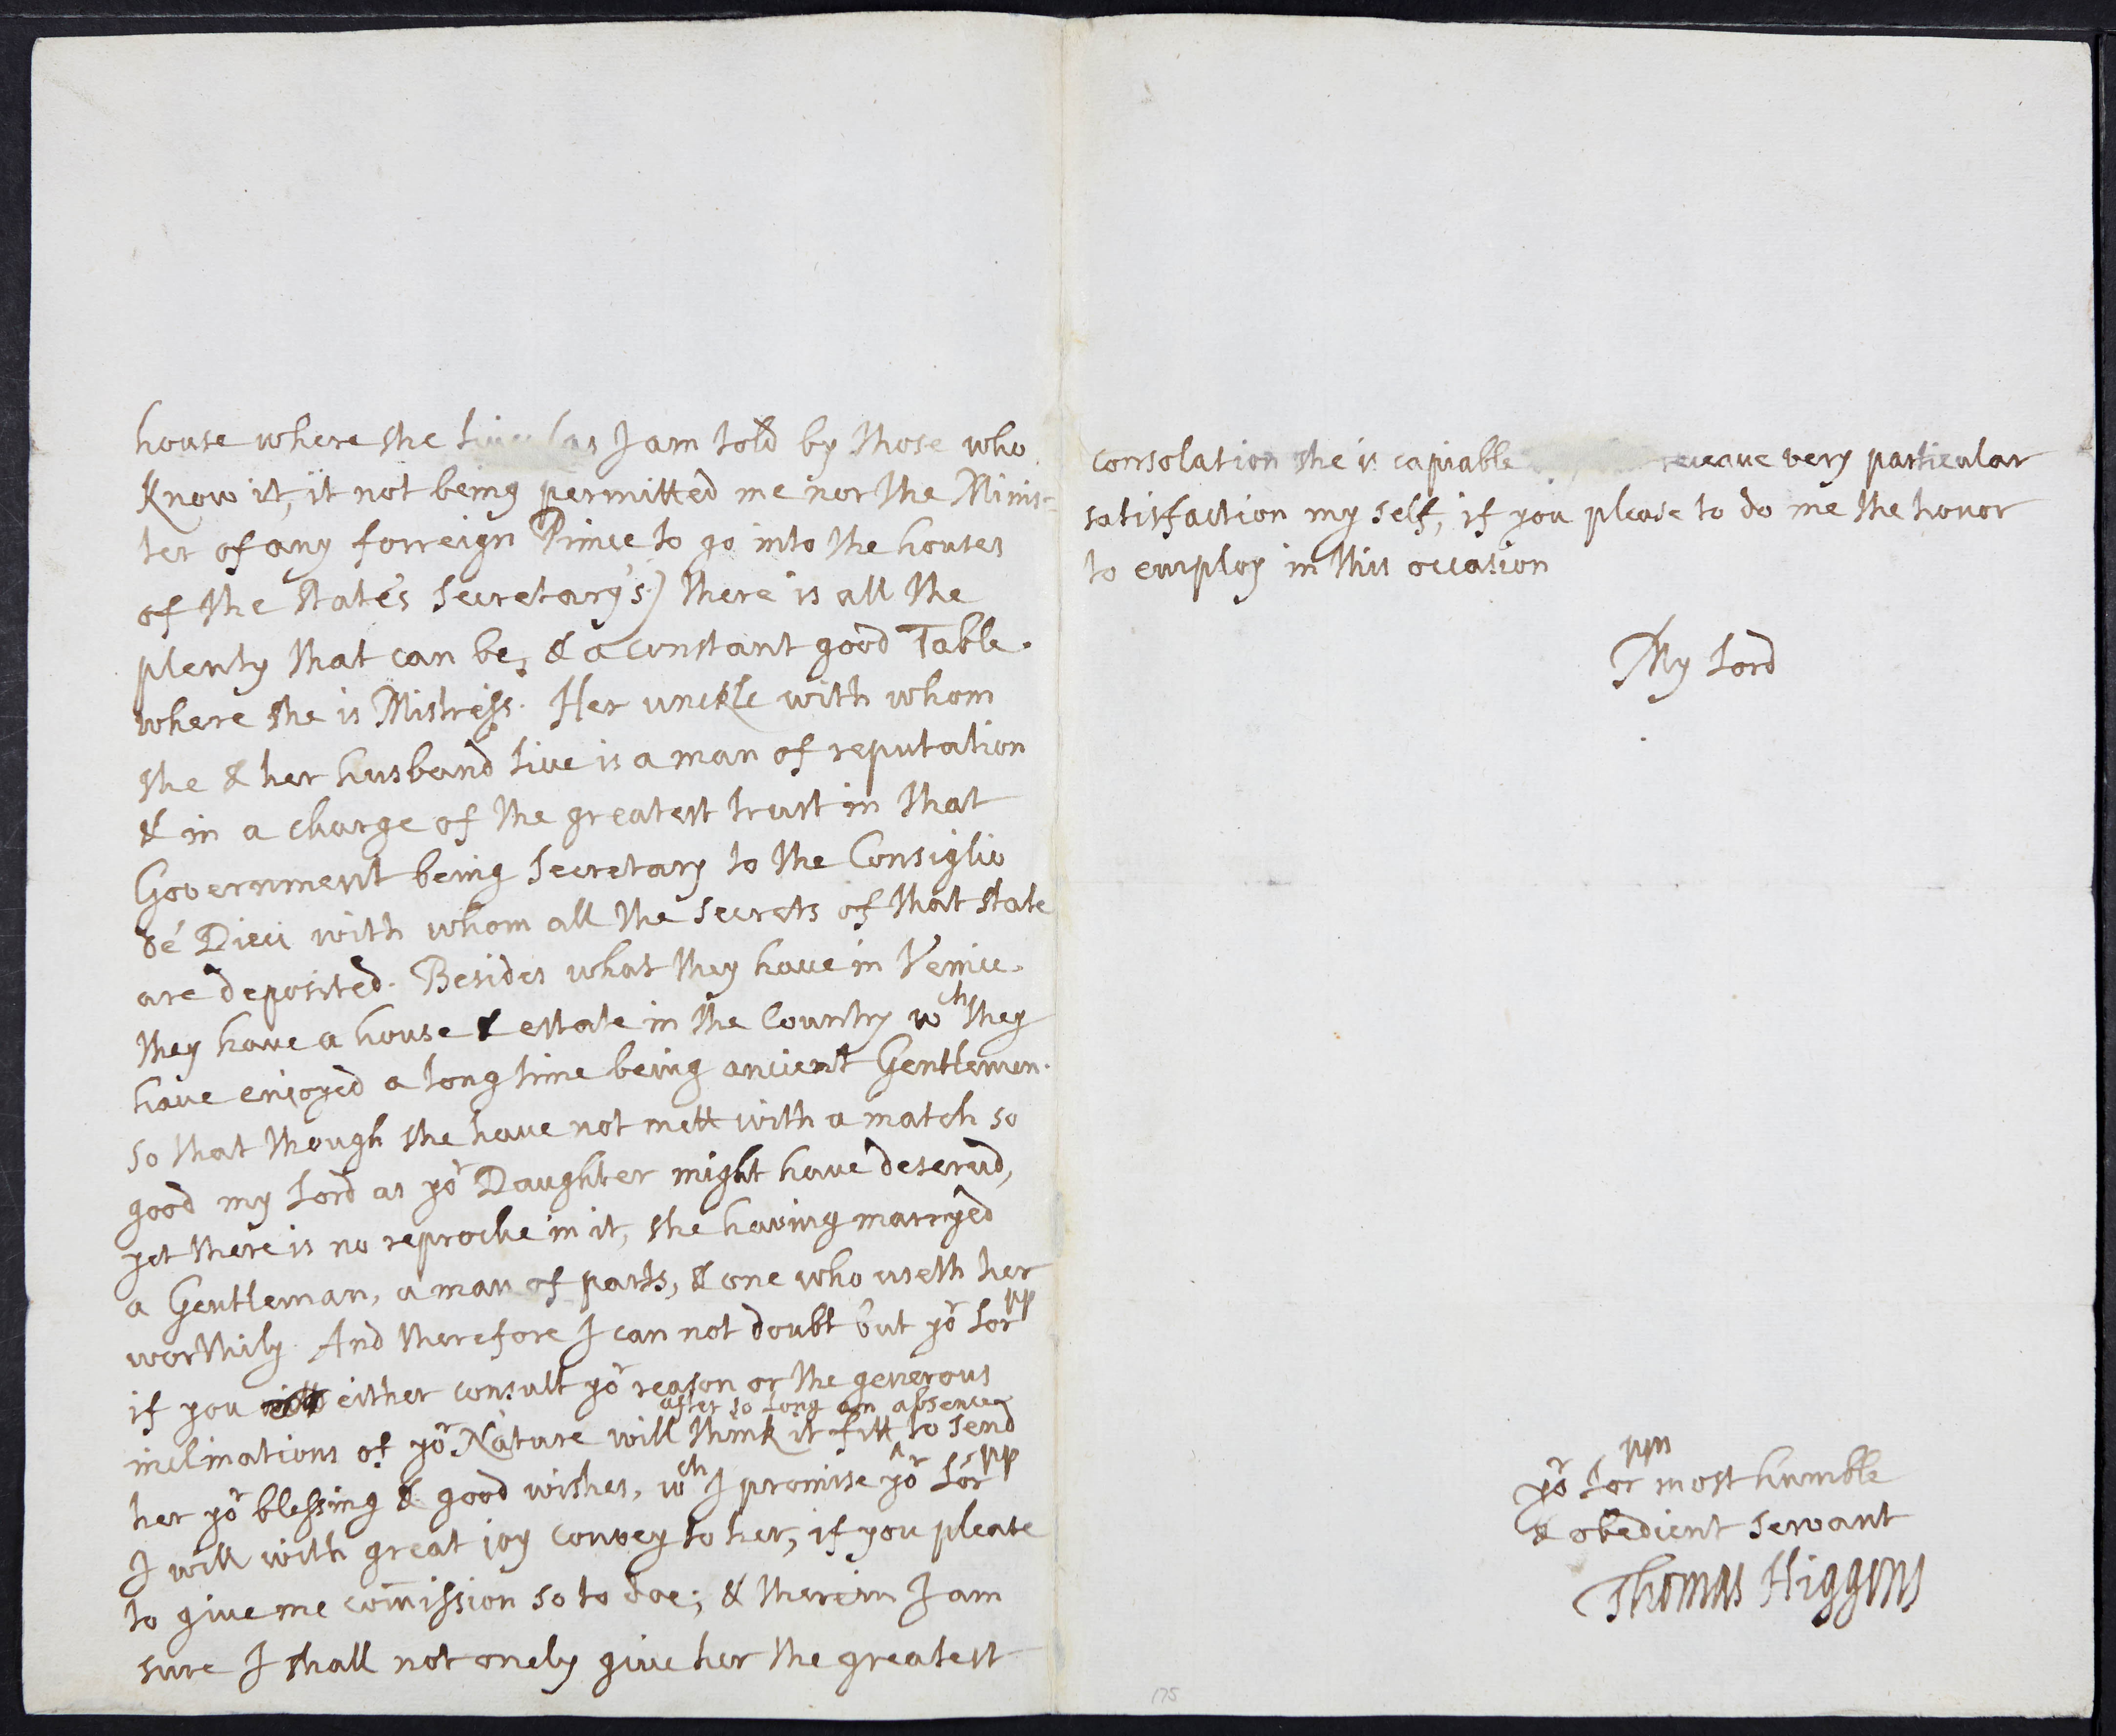 house where she lives (as I am told by those who
Know it, it not being permitted me nor the Minis=
ter of any forreign Prince to go into the houses
of the State's Secretary's) there is all the
plenty that can be, & a constant good Table.
where she is Mistress. Her unckle with whom
she & her husband live is a man of reputation
& in a charge of the greatest trust in that
Government being Secretary to the Consiglio
dé Dieci with whom all the secrets of that state
are deposited. Besides what they have in Venice.
they have a house & estate in the Country wch they
have enjoyed a long time being ancient Gentlemen.
so that though she have not mett with a match so
good my Lord as yor Daughter might have deserud,
yet there is no reproche in it, she having marryed
a Gentleman, a man of parts, & one who useth her
worthily. And therefore I can not doubt but yor Lorpp
if you either consult yor reason or the generous
after so long an absence
inclinations of yor Nature will think it fitt to send
her yor blessing & good wishes, wch I promise yor Lorpp
I will with great joy convey to her, if you please
to give me com̄ission so to doe; & therein I am
sure I shall not onely give her the greatest
consolation she is capiable receave very particular
satisfaction my self, if you please to do me the honor
to employ in this occasion
My Lord
yor Lorpps most humble
& obedient servant
Thomas Higgons
175